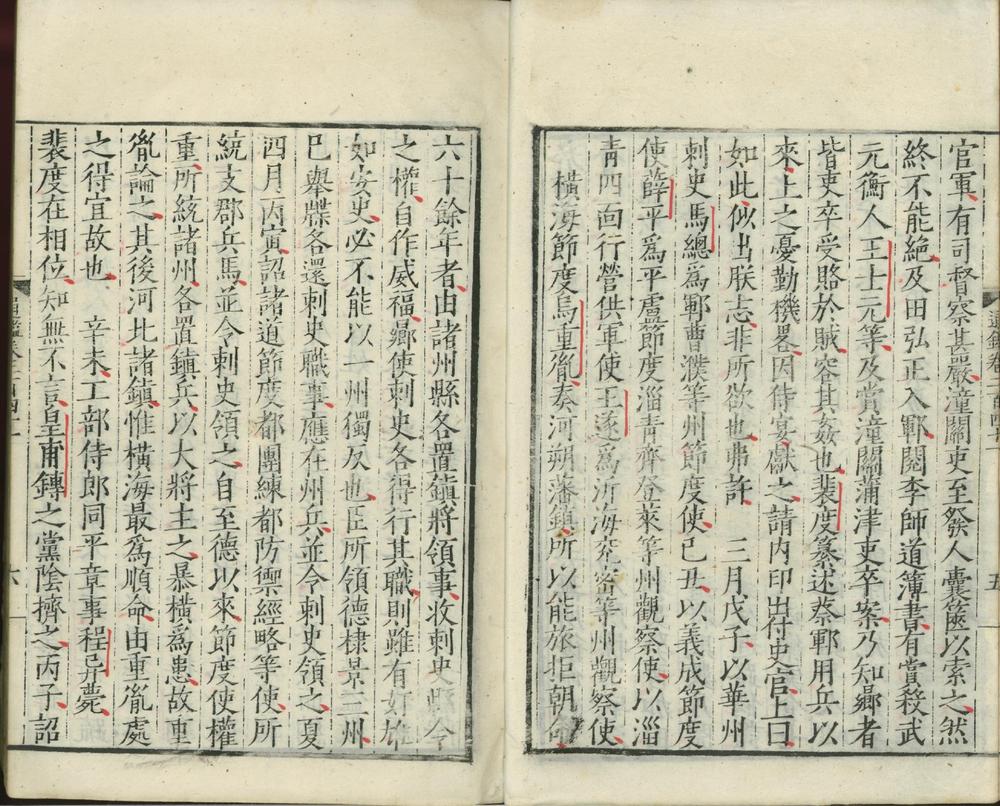 官軍有司督察甚嚴潼關吏至發人囊篋以索之然
終不能絶及田弘正入鄆閱李師道簿書有賞殺武
元衡人王士元等及賞潼關蒲津吏卒案乃知曏者
皆吏卒受賂於賊容其姦也裴度纂述蔡鄆用兵以
來上之憂勤機畧因侍宴獻之請内印出付史官上曰
如此似出朕志非所欲也弗許　三月戊子以華州
刺史馬總爲鄆曹濮等州節度使己丑以義成節度
使薛平爲平盧節度淄青齊登萊等州觀察使以淄
青四面行營供軍使王遂爲沂海兖密等州觀察使
橫海節度烏重胤奏河朔藩鎮所以能旅拒朝命
六十餘年者由諸州縣各置鎮將領事收刺史縣令
之權自作威福曏使刺史各得行其職則雖有奸雄
如安史必不能以一州獨反也臣所領德棣景三州
已舉牒各還刺史職事應在州兵並令刺史領之夏
四月丙寅詔諸道節度都團練都防禦經略等使所
統支郡兵馬並令刺史領之自至德以來節度使權
重所統諸州各置鎮兵以大將主之暴橫爲患故重
胤論之其後河北諸鎮惟橫海最爲順命由重胤處
之得宜故也　辛未工部侍郎同平章事程异薨
裴度在相位知無不言皇甫鎛之黨陰擠之丙子詔
五
六